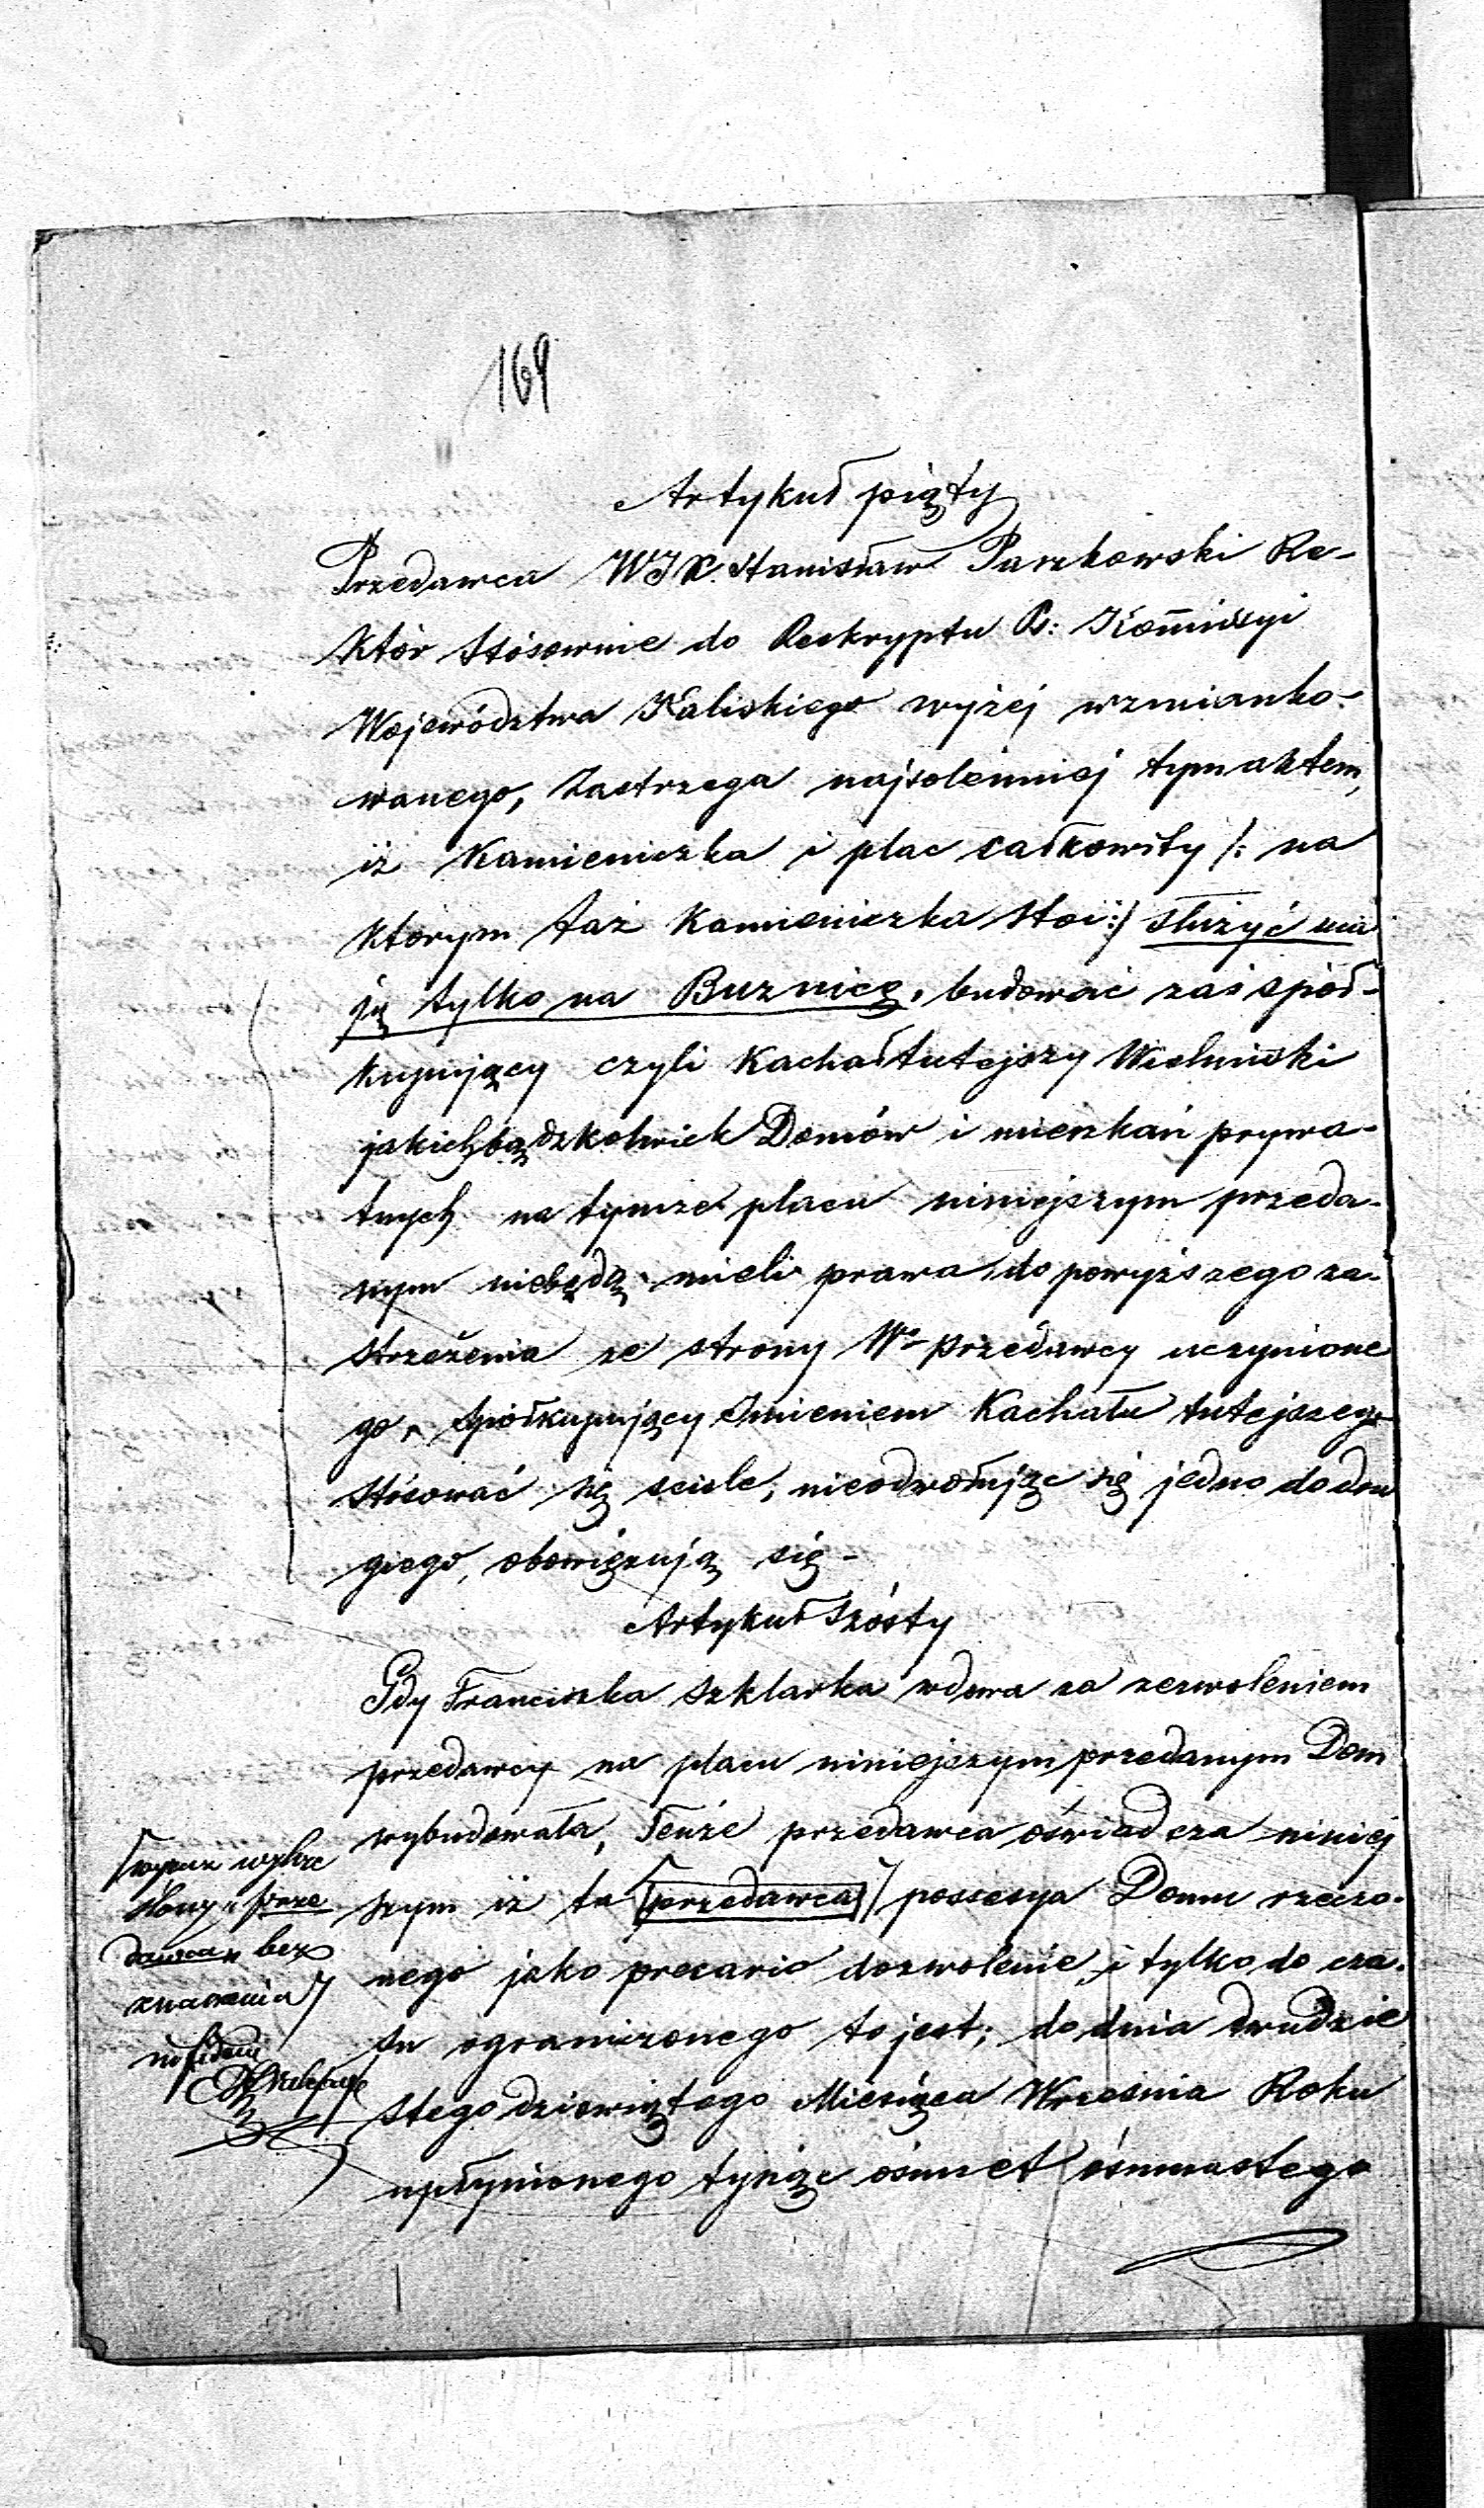 169
Artykuł piąty
Przedawca WJX. Stanisław Paszkowski Re-
któr stósownie do Reskryptu R: Kommissyi
Województwa Kaliskiego wyżej wzmianko-
wanego, zastrzega najsolenniej tym aktem,
iż Kamieniczka i plac całkowity /: na
którym taż Kamieniczka stoi :/ służyć ma
ją tylko na Buznicę, budować zaś spół-
kupujący czyli Kachał tutejszy Wieluński
jakichbądzkolwiek Domów i mieszkań prywa-
tnych na tymże placu niniejszym przeda-
nym niebędą mieli prawa, do powyższego za-
strzeżenia ze strony Wo przedawcy uczynione
go, spółkupujący Imieniem Kachału tutejszego
stósować się scisle, nieodwołując się jedno do dru
giego, obowiązują się -
Artykuł szósty
Gdy Franciszka Szklarka wdowa za zezwoleniem
przedawcy na placu niniejszym przedanym Dom
wybudowała, Tenże przedawca oświadcza niniej
szym iż ta [przedawca] possesya Domu rzeczo-
nego jako precario dozwolenie, i tylko do cza-
su ograniczonego to jest; do dnia dwudzie
stego dziewiątego Miesiąca Września Roku
upłynionego tysiąc ośmset ośmnastego
wyraz wykre
ślony „ prze
dawca „ bez
znaczenia